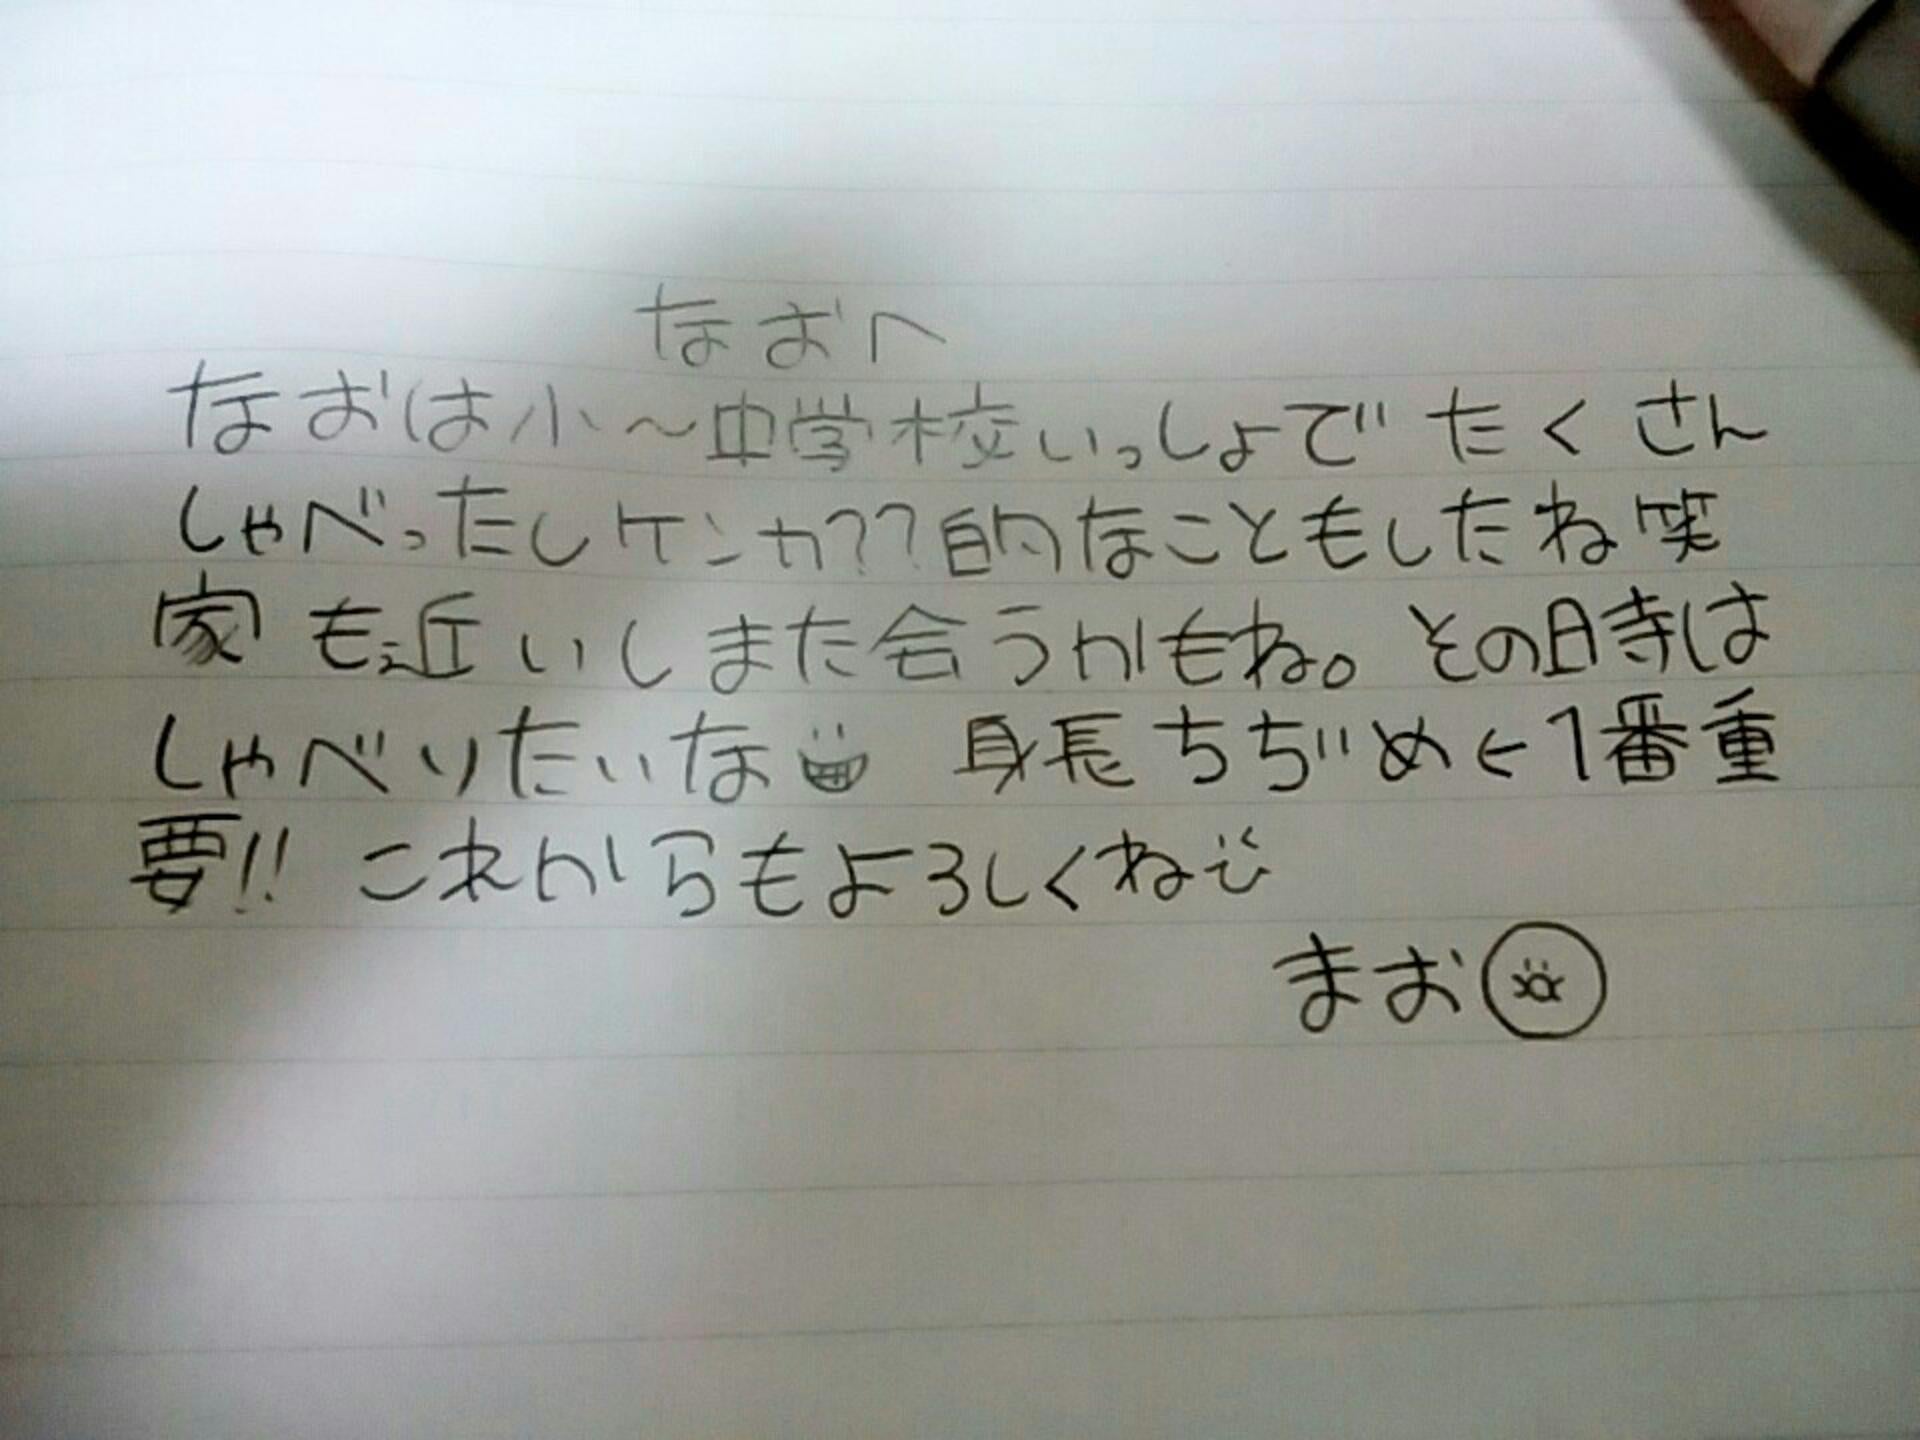 なおへ
なおは小～中学校いっしょでたくさん
しゃべったしケンカ??的なこともしたね笑
家も近いしまた会うかもね。その時は
しゃべりたいな 身長ちぢめ←1番重
要!! これからもよろしくね
まお